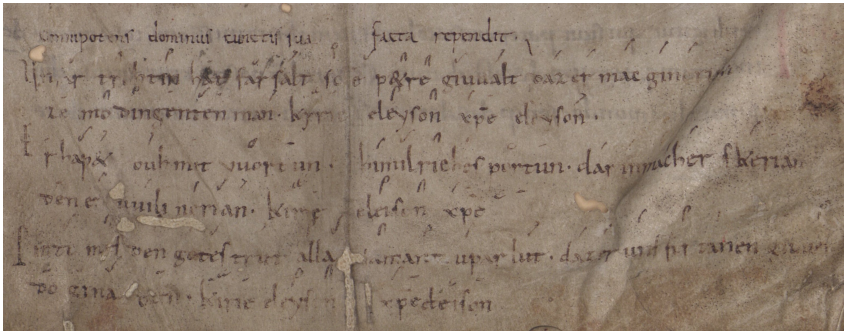 omnipotens dominus cunctis sua facta rependit.
Unsar trohtin hat farsalt sce petre giuualt daz er mac ginerian
ze imo dingenten man. kyrie eleyson xpe eleyson.
Er hapet ouh mit vuortun. himilriches portun. dar in mach er skerian
den er uuili nerian. kirie eleison xpe
den gotes trut alla samant uparlut. daz er uns firtanen
do ginaden. kirie eleyson xpe eleison